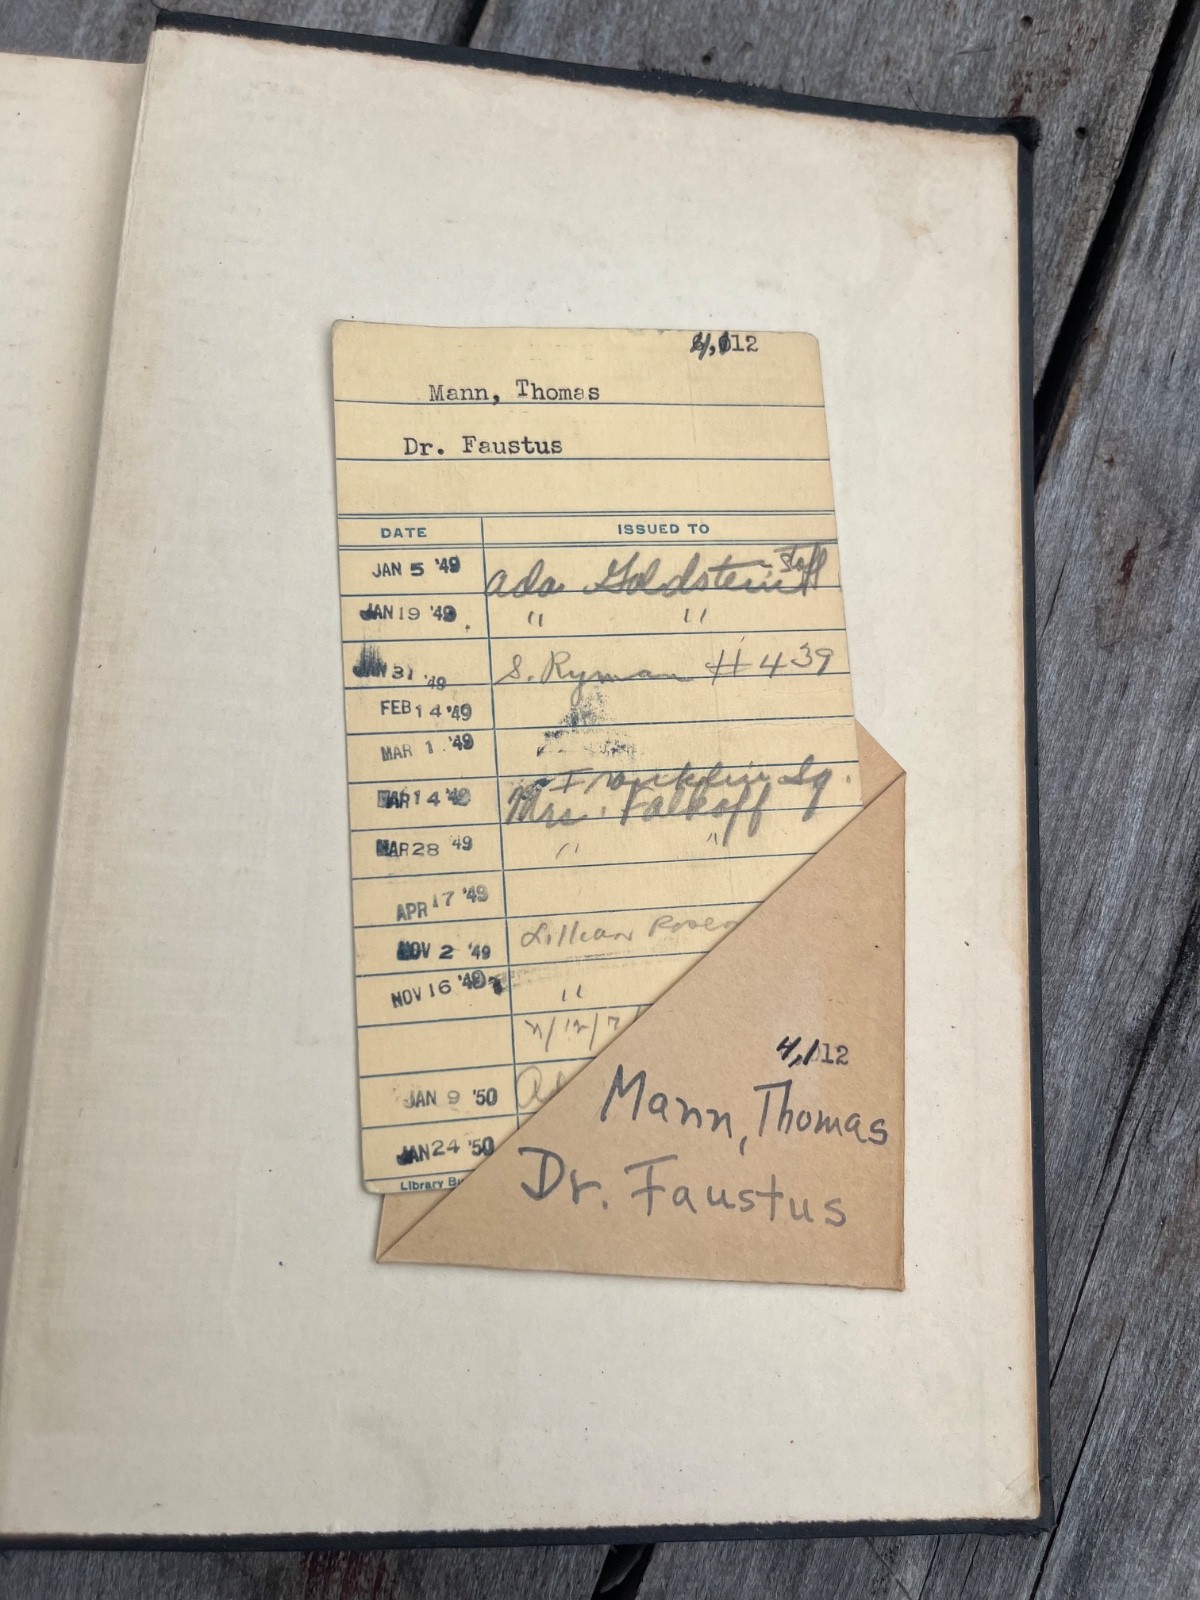 12
Mann, Thomas
Dr. Faustus
DATE ISSUED TO
JAN 5 '49 Ada Goldstein Staff
JAN 19 '49 " "
JAN 31 '49 S. Ryman #439
FEB 14 '49
MAR 1 '49
Franklin Sq.
MAR 14 '49 Mrs. Falkoff
MAR 28 '49 " "
APR 17 '49
NOV 2 '49 Lillian
NOV 16 '49 "
JAN 9 '50
JAN 24 '50
Library
4,112
Mann, Thomas
Dr. Faustus